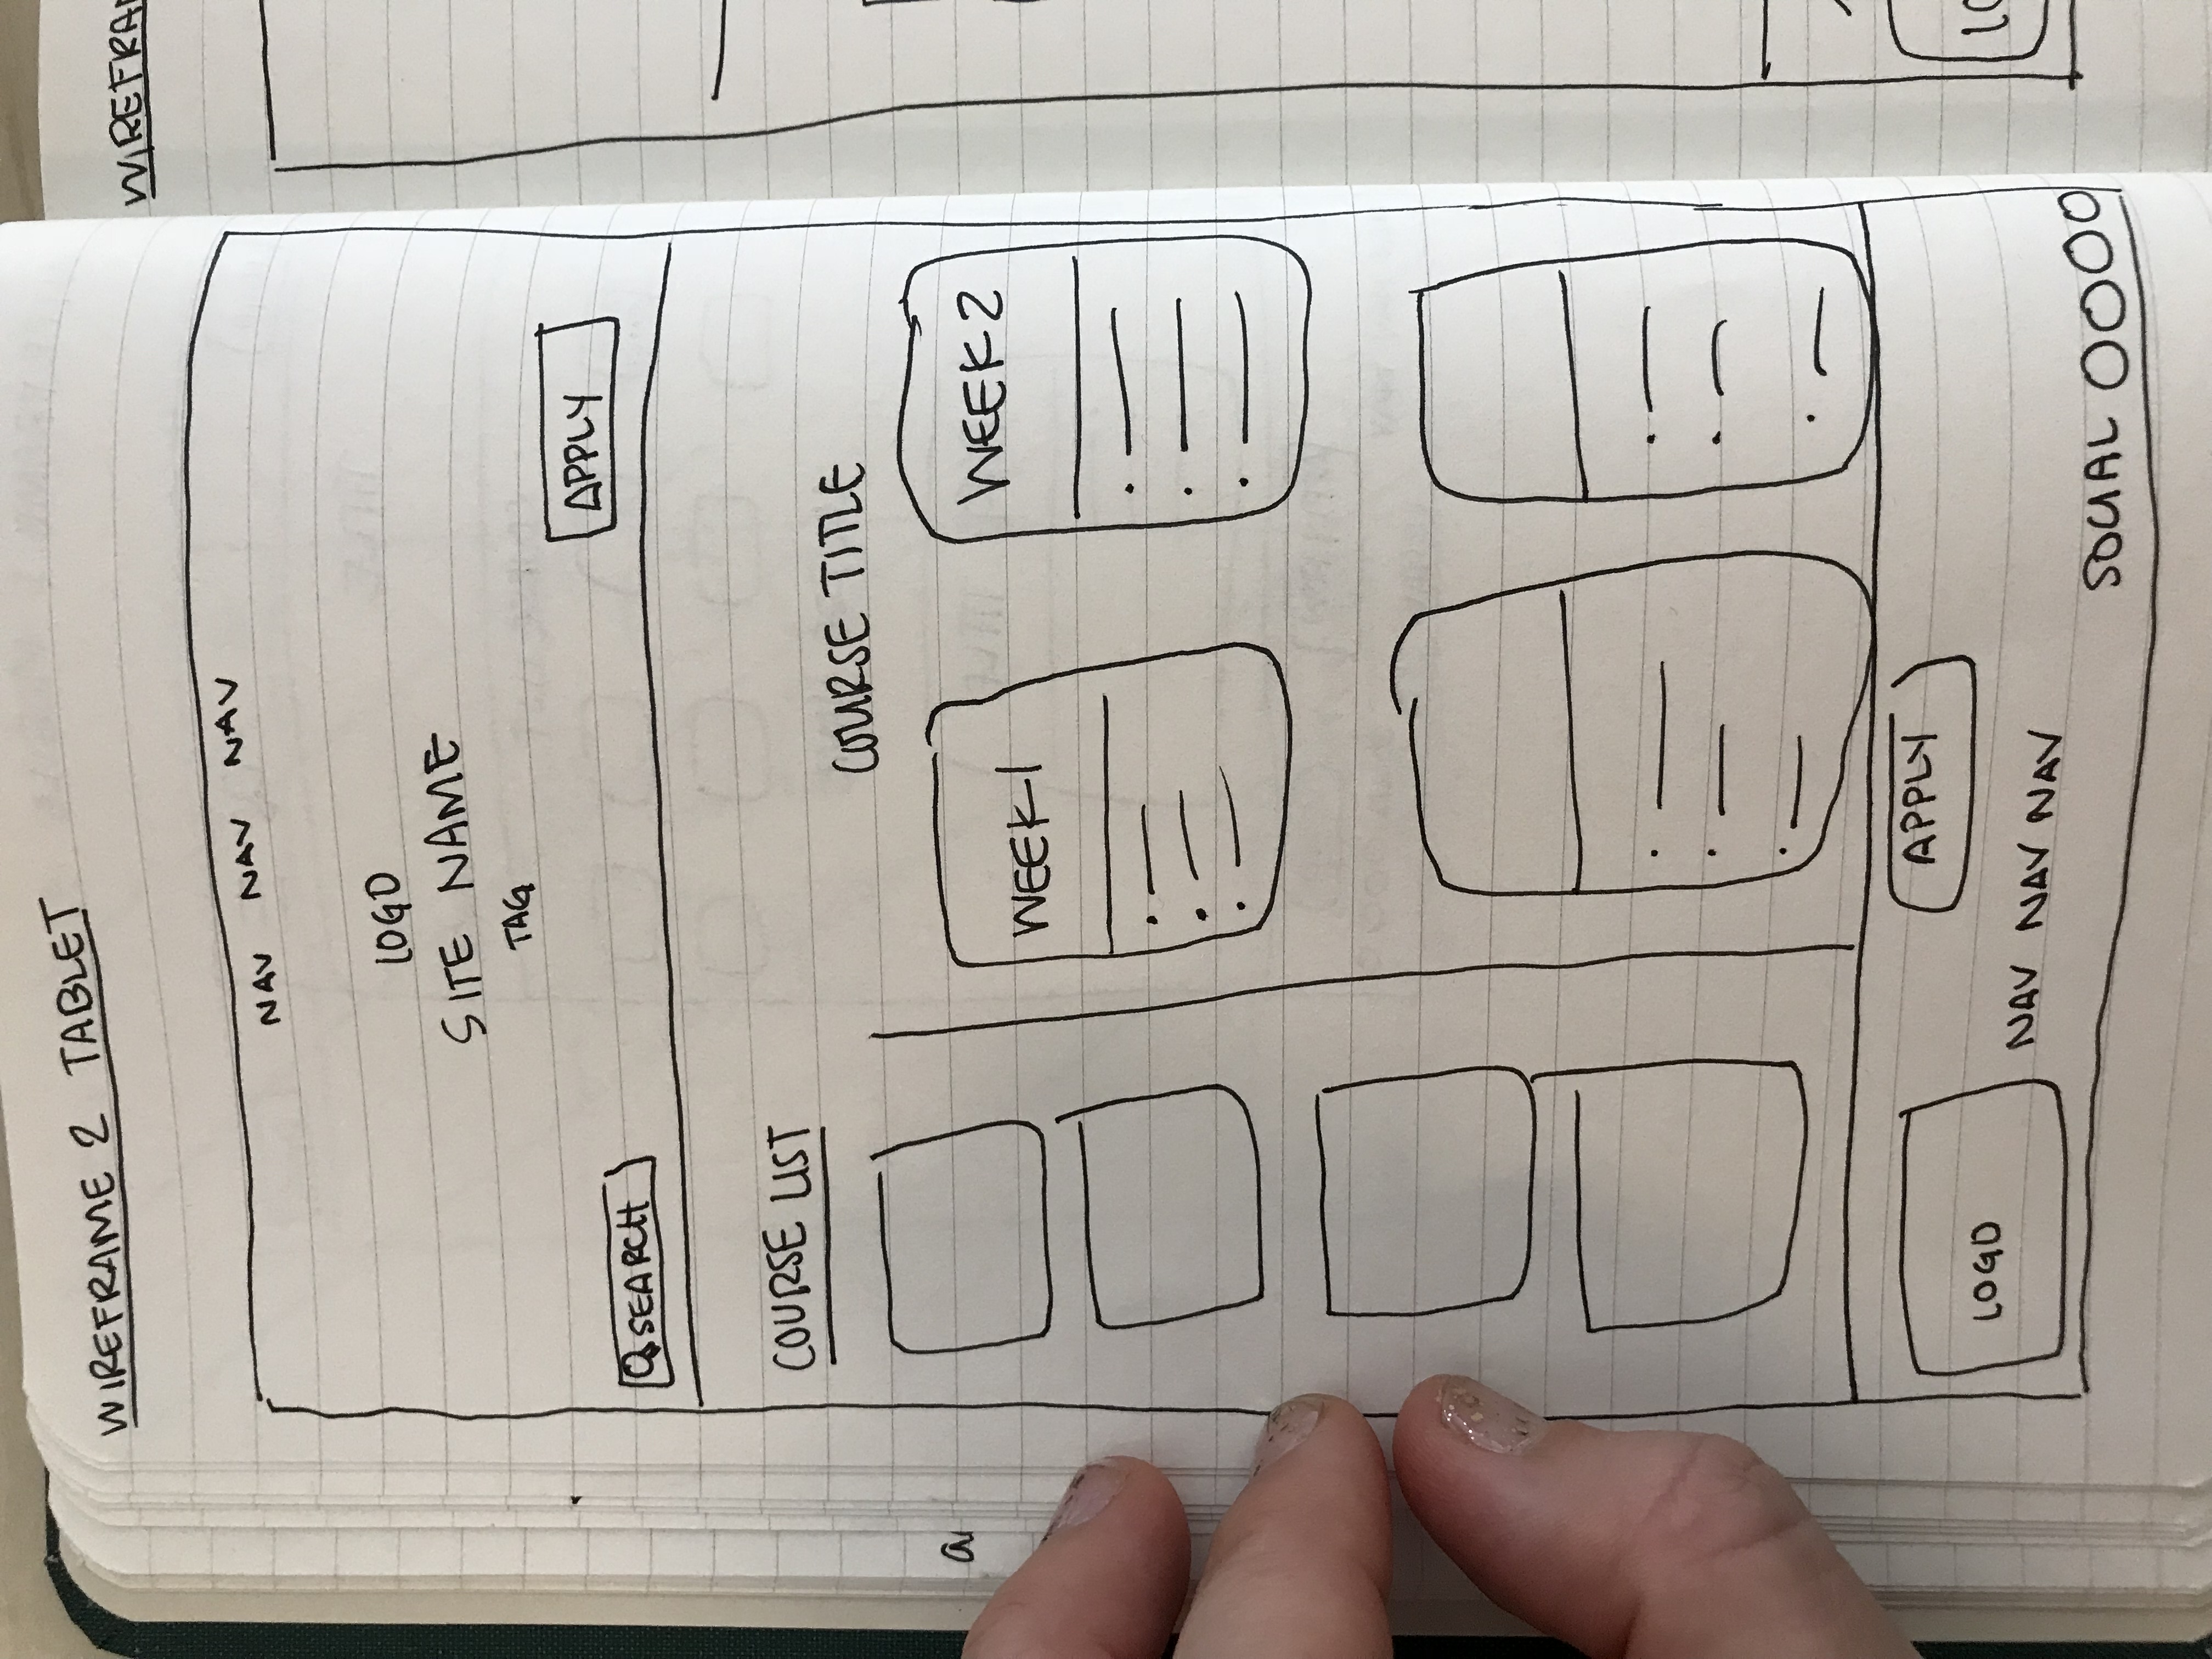 WIREFRAME 2 TABLET
NAV NAV NAV
LOGO
SITE NAME
TAG
APPLY
SEARCH
COURSE LIST
COURSE TITLE
WEEK 1
WEEK 2
APPLY
LOGO
NAV NAV NAV
SOCIAL